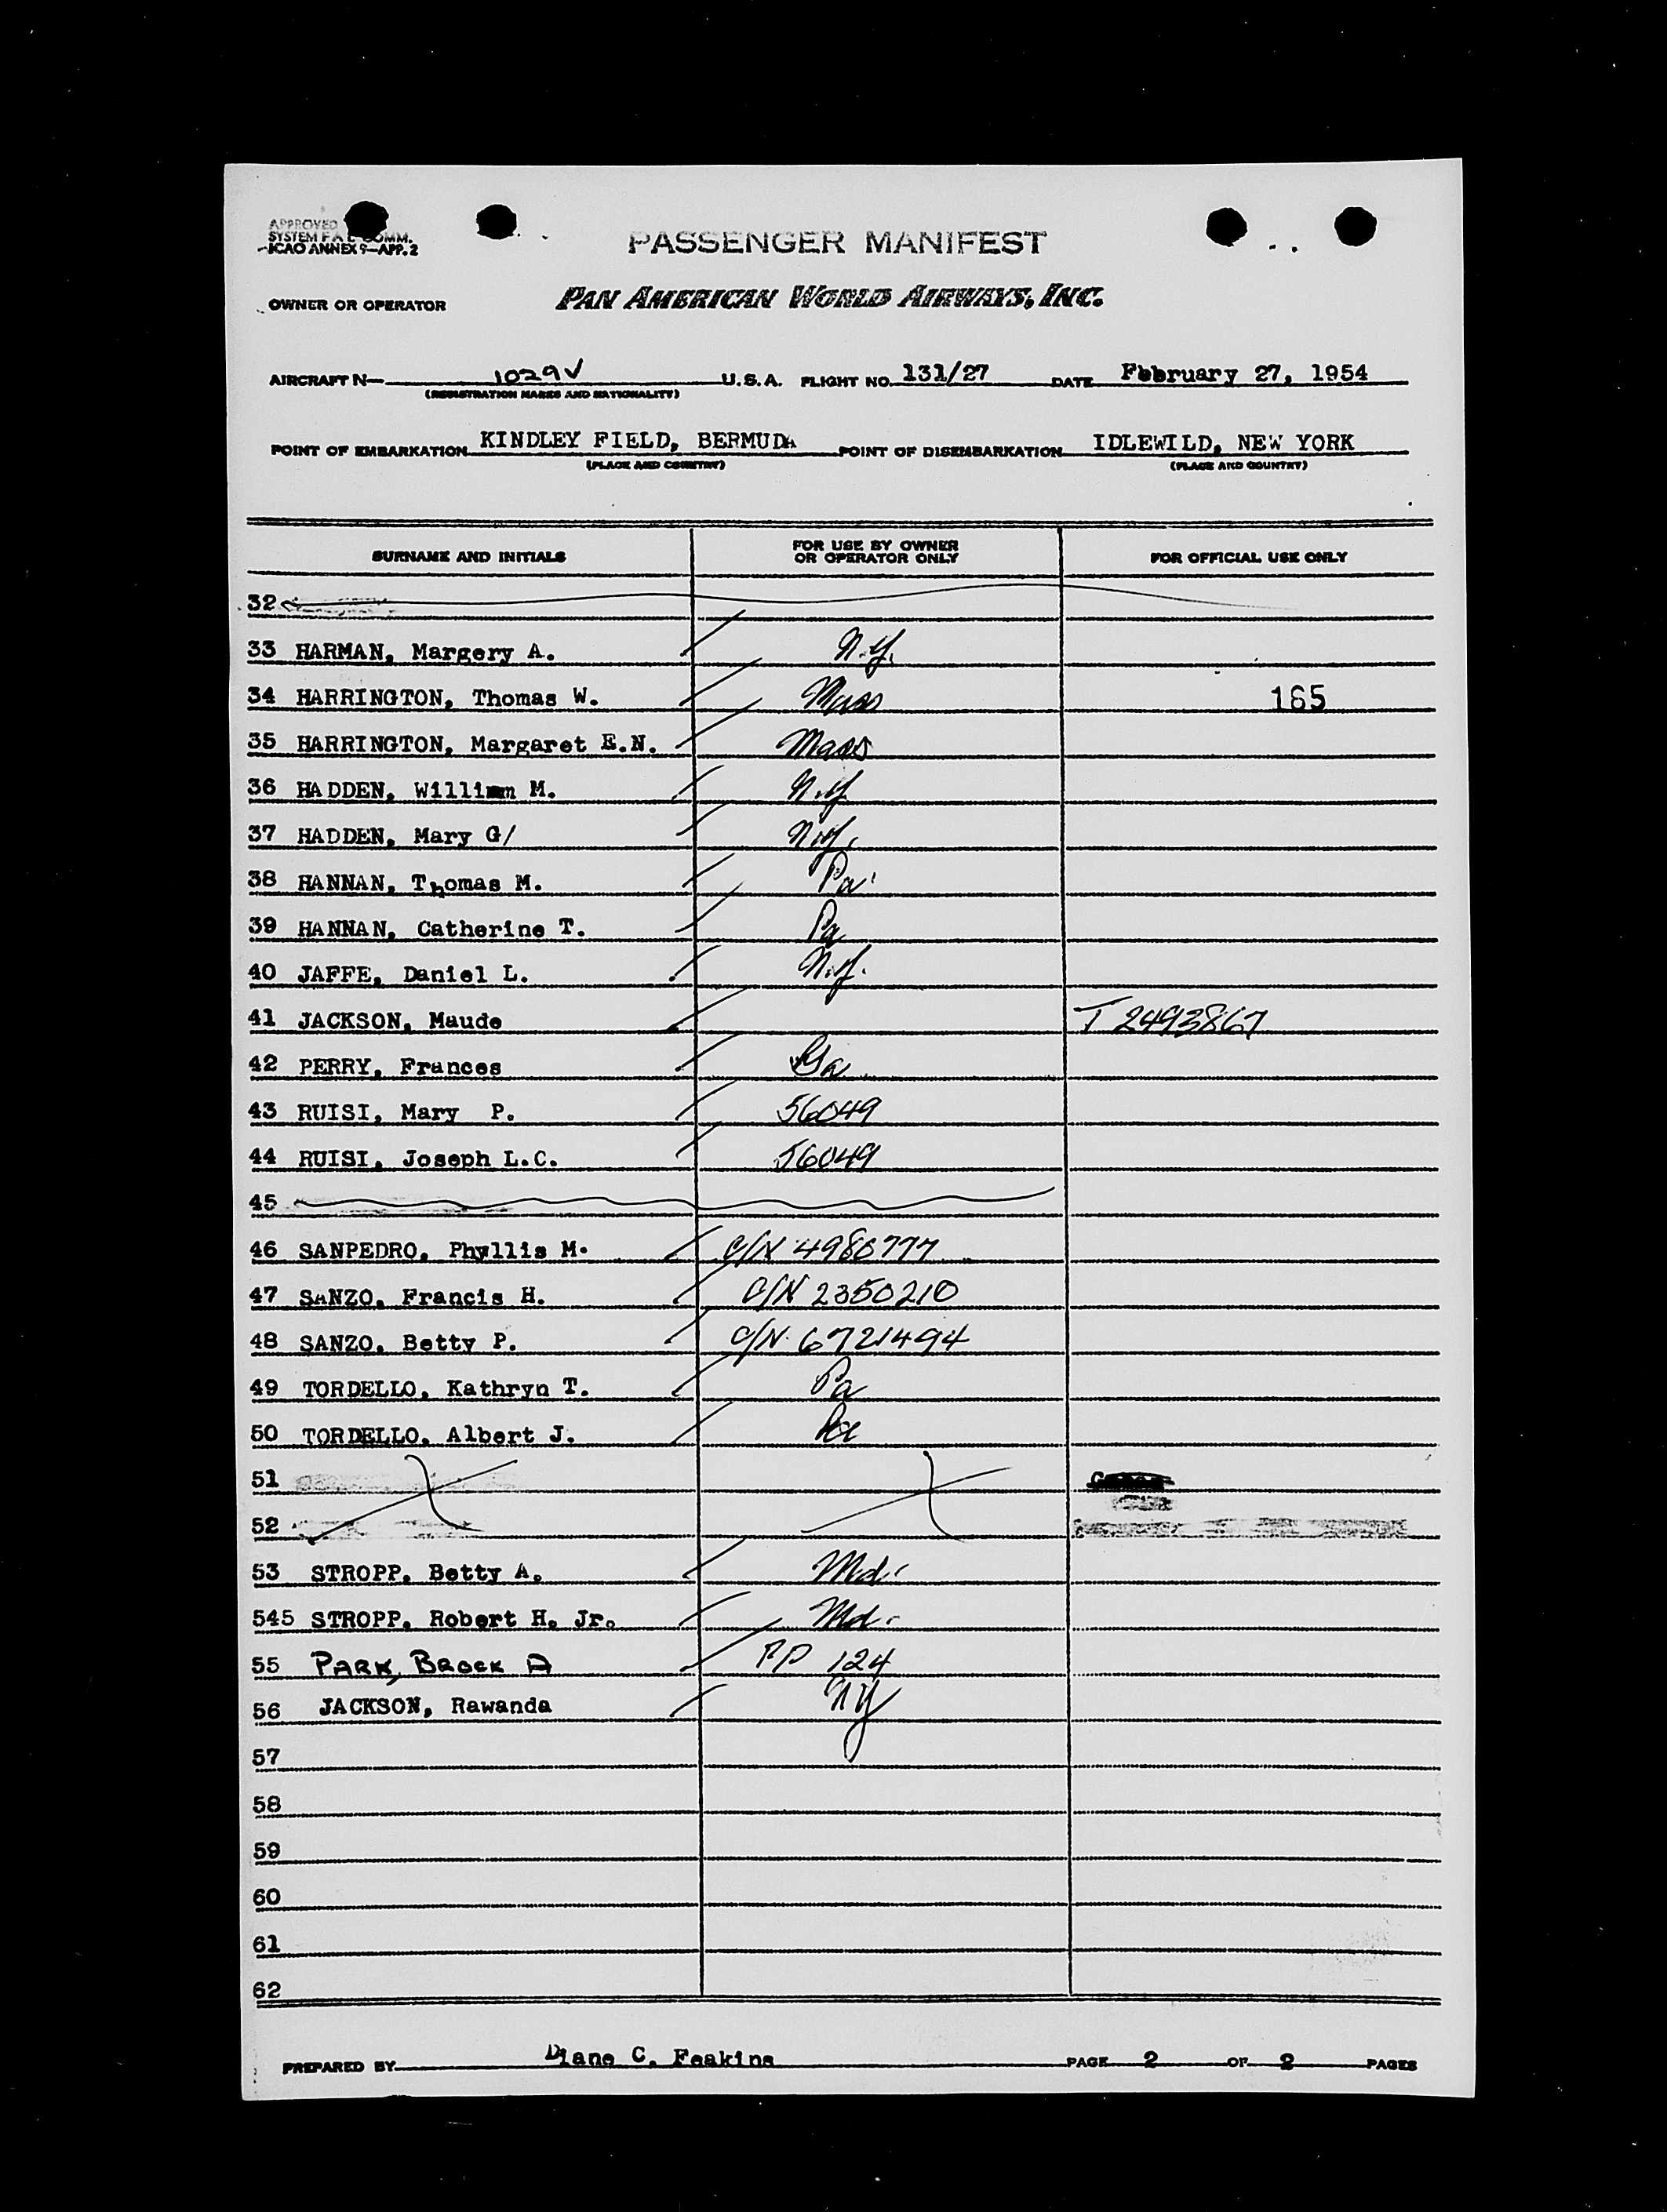 APPROVED
SYSTEM F A L COMM.
ICAO ANNEX 9—APP. 2
PASSENGER MANIFEST
OWNER OR OPERATOR PAN AMERICAN WORLD AIRWAYS, INC.
AIRCRAFT N— 1029V U.S.A. FLIGHT NO. 131/27 DATE February 27, 1954
(REGISTRATION MARKS AND NATIONALITY)
POINT OF EMBARKATION KINDLEY FIELD, BERMUDA POINT OF DISEMBARKATION IDLEWILD, NEW YORK
(PLACE AND COUNTRY) (PLACE AND COUNTRY)
SURNAME AND INITIALS FOR USE BY OWNER OR OPERATOR ONLY FOR OFFICIAL USE ONLY
32
33 HARMAN, Margery A. N.Y.
34 HARRINGTON, Thomas W. Mass 165
35 HARRINGTON, Margaret E.N. Mass
36 HADDEN, William M. N.Y
37 HADDEN, Mary G/ N.Y.
38 HANNAN, Thomas M. Pa.
39 HANNAN, Catherine T. Pa
40 JAFFE, Daniel L. N.Y.
41 JACKSON, Maude T 2493867
42 PERRY, Frances Ga
43 RUISI, Mary P. 56049
44 RUISI, Joseph L.C. 56049
45
46 SANPEDRO, Phyllis M. C/N 4986777
47 SANZO, Francis H. C/N 2350210
48 SANZO, Betty P. C/N 6721494
49 TORDELLO, Kathryn T. Pa
50 TORDELLO, Albert J. Pa
51
52
53 STROPP, Betty A. Md.
545 STROPP, Robert H. Jr. Md.
55 PARK, BROCK A PP 124
56 JACKSON, Rawanda NY
57
58
59
60
61
62
PREPARED BY Diane C. Feakins PAGE 2 OF 2 PAGES